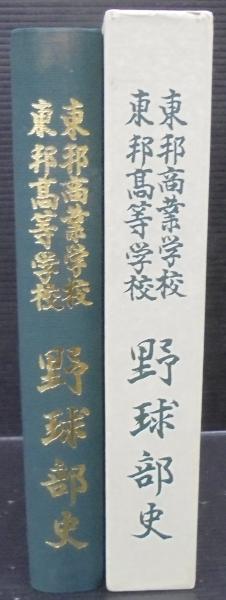 東邦商業学校
東邦高等学校
野球部史
東邦商業学校
東邦高等学校
野球部史